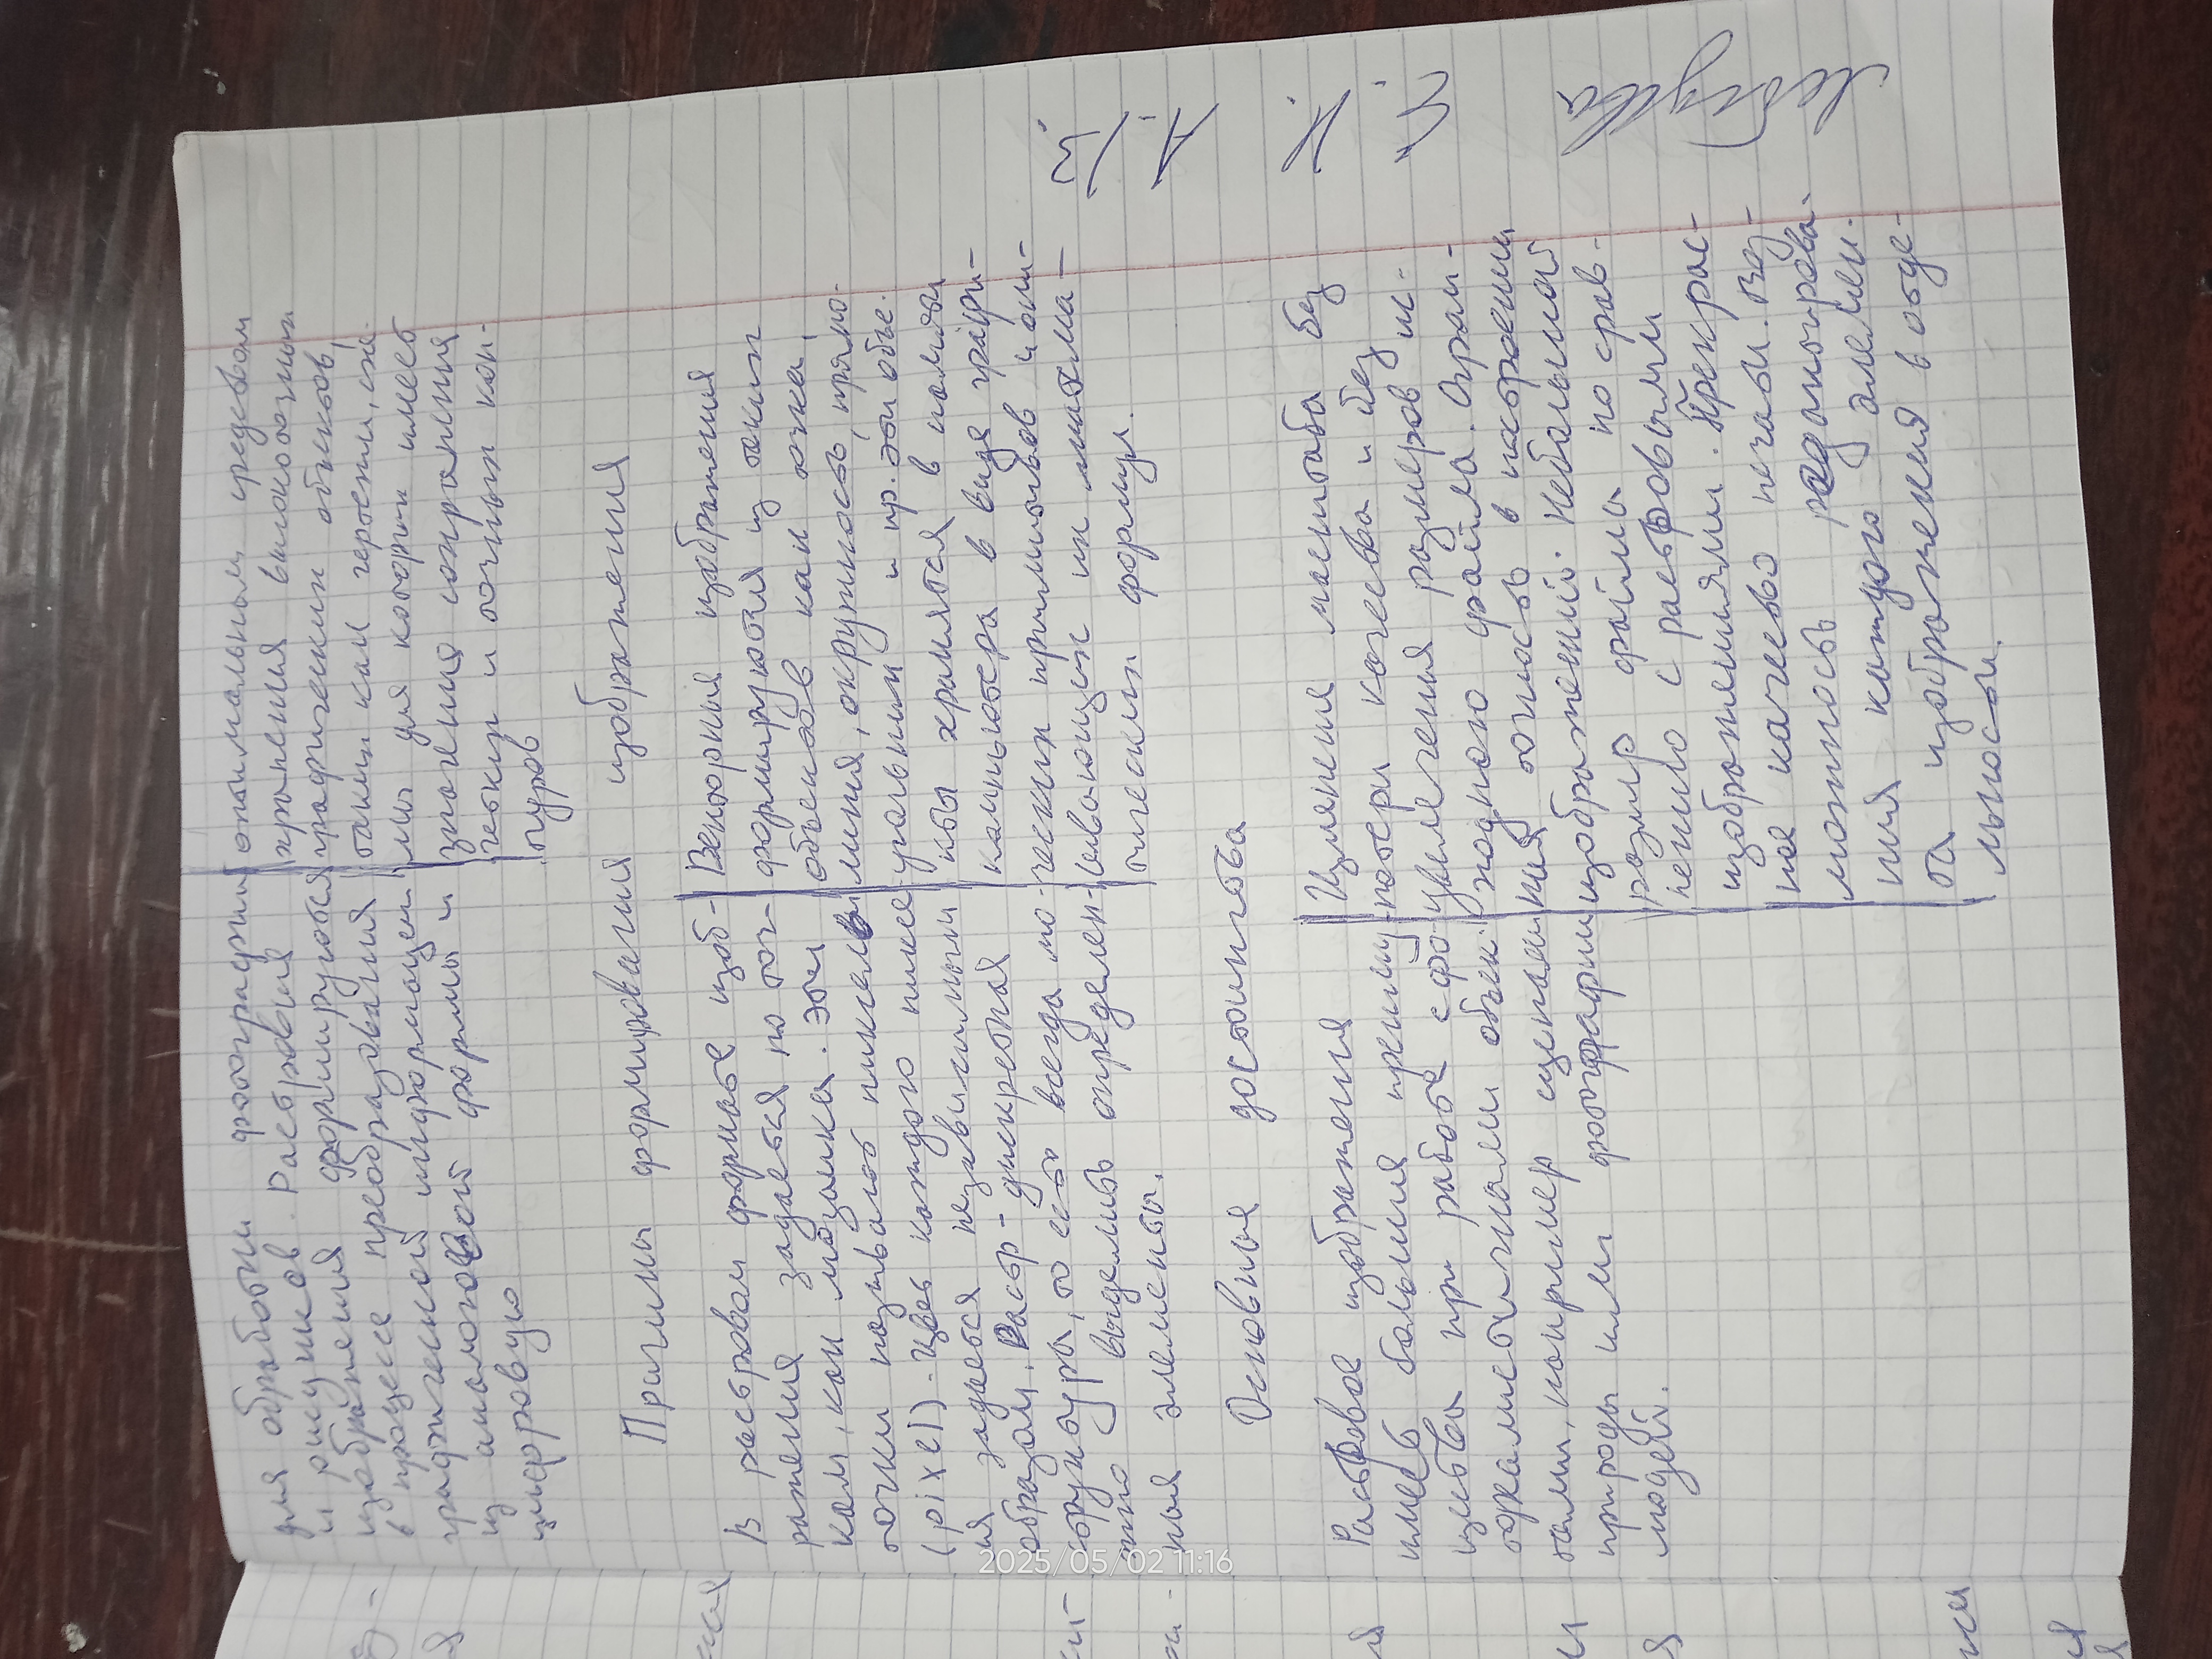 для обработки фотографии
и рисунков. Растровые
изображения формируются
в процессе преобразования
графической информации
из аналоговой формы и
цифровую
оптимальным средством
хранения высокоточных
графических обьектов,
таких как чертежи, схе-
мы для которых имеет
значение сохранения
четких и точных кон-
туров
Принципы формирования изображения
В растровом формате изоб-
ражения задается по точ-
кам, как мозаика. Эти
точки называют пиксели
(pixel). Цвет каждого пиксе-
ля задается независимым
образом. Растр - дискретная
структура, то есть всегда мо-
жно выделить определен-
ные элементы.
Векторные изображения
формируются из таких
объектов как точка,
линия, окружность, прямо-
угольник и пр. Эти объе-
кты хранятся в памяти
компьютера в виде графи-
ческих примитивов и опи-
сывающих их математи-
ческих формул.
Основные достоинства
Растровое изображения
имеет большие преиму-
щества при работе с фо-
тореалистичными объек-
тами, например сценами
природы или фотографии
людей.
Изменения масштаба без
потери качества и без
увелечения размеров ис-
ходного файла. Огром-
ная точность в построении
изображений. Небольшой
размер файлы по срав-
нению с растровыми
изображениями. Прекрас-
ное качество печати. Воз-
можность редактирова-
ния каждого элемен-
та изображения в отде-
льности.
2025/05/02 11:16